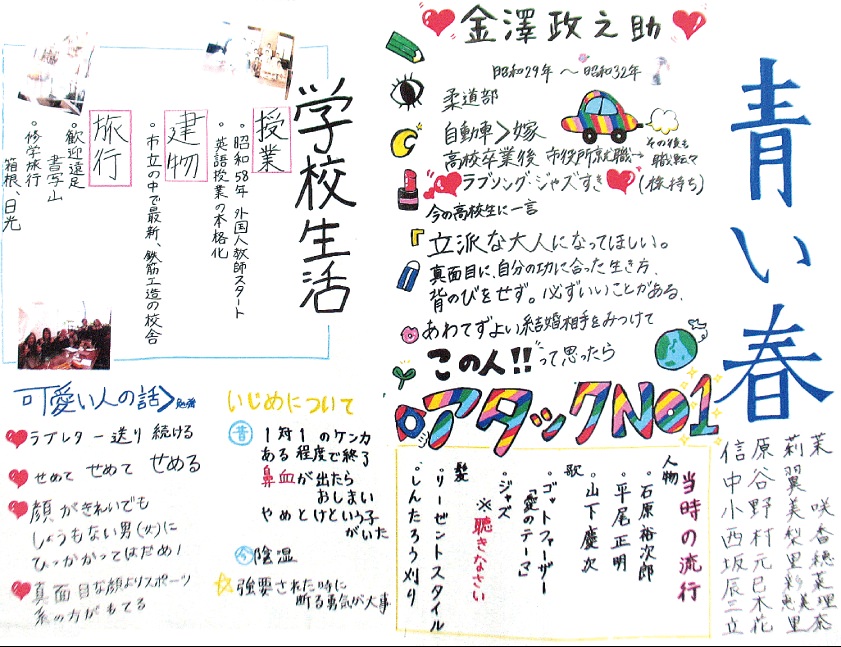 青い春
金澤政之助
昭和29年 ～昭和32年
柔道部
自動車＞嫁
高校卒業後 市役所就職→ その後も
職転々
ラブソング・ジャズすき (株持ち)
今の高校生に一言
立派な大人になってほしい。
真面目に、自分の功に合った生き方、
背のびをせず。必ずいいことがある。
あわてずよい結婚相手をみつけて
この人!!って思ったら
アタックNo1
信原 莉茉
中谷 翼
小野 美咲
西村 梨香
坂元 里穂
辰巳
三木
立花 里奈
当時の流行
人物
・石原裕次郎
・平尾正明
・山下慶次
歌
・ゴットファーザー
「愛のテーマ」
・ジャズ
※聴きなさい
髪
・リーゼントスタイル
・しんたろう刈り
学校生活
授業
・昭和58年 外国人教師スタート
・英語授業の本格化
建物
・市立の中で最新、鉄筋工造の校舎
旅行
・歓迎遠足
書写山
・修学旅行
箱根、日光
可愛い人の話＞勉強
ラブレター送り続ける
せめて せめて せめる
顔がきれいでも
しょうもない男(女)に
ひっかかってはだめ!
真面目な顔よりスポーツ
系の方がもてる
いじめについて
昔 1対1のケンカ
ある程度で終了
鼻血が出たら
おしまい
やめとけという子
がいた
今 陰湿
☆強要された時に
断る勇気が大事